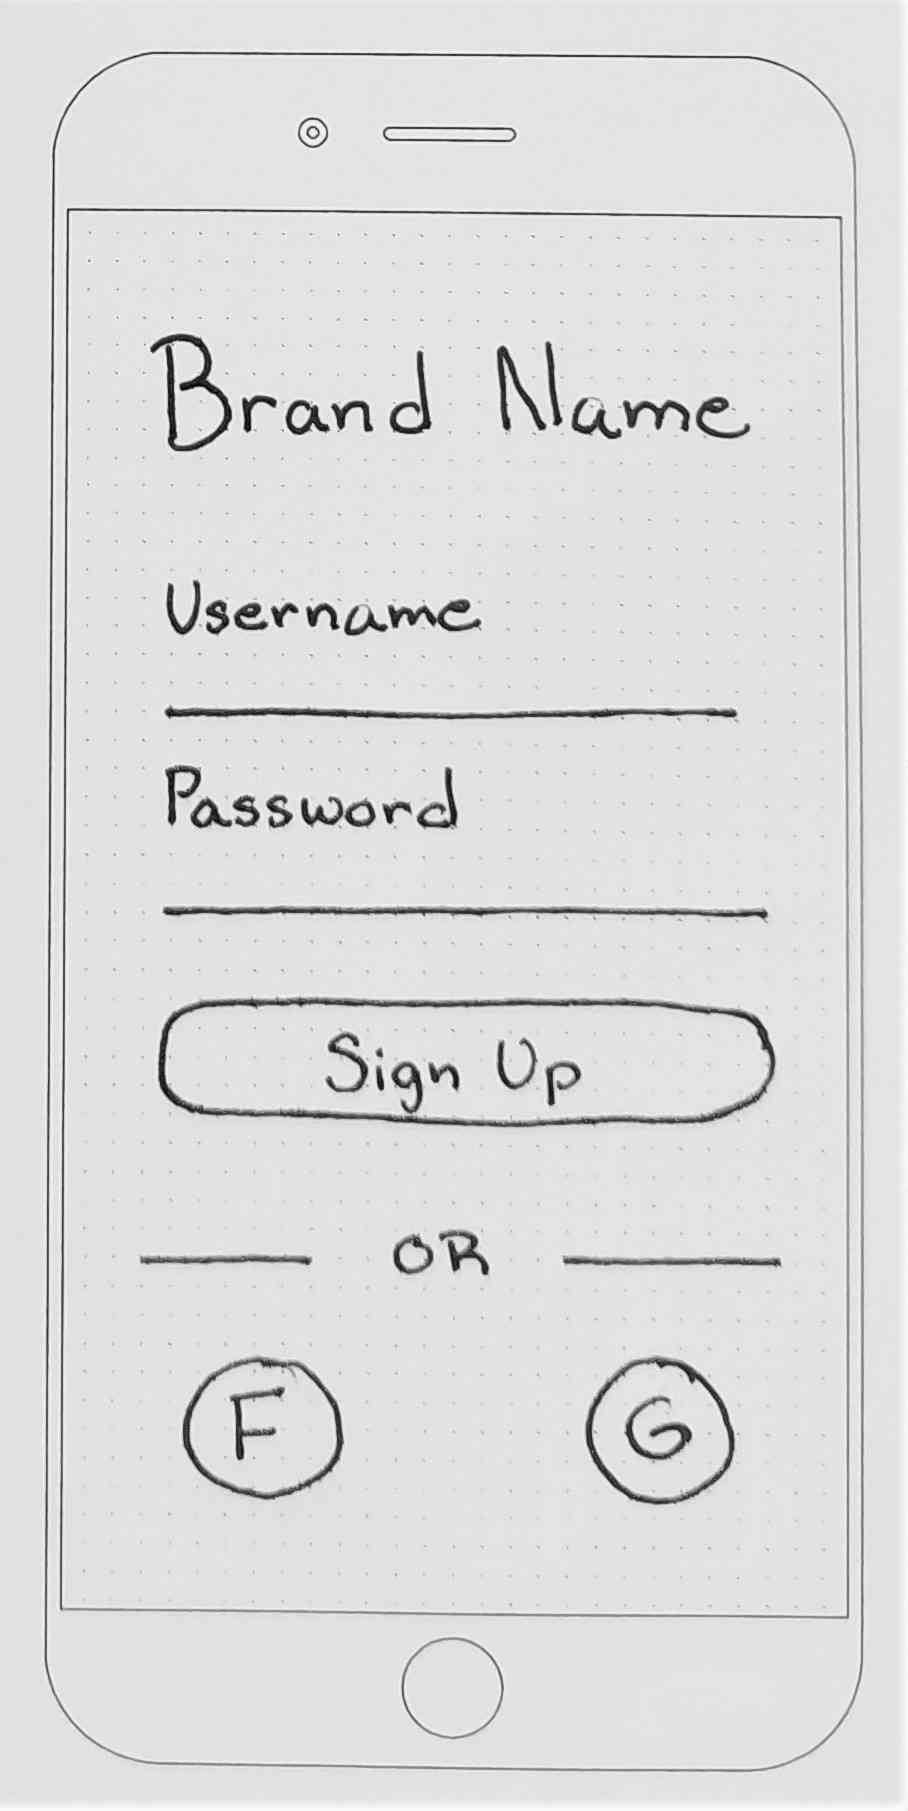 Brand Name
Username
Password
Sign Up
OR
F G